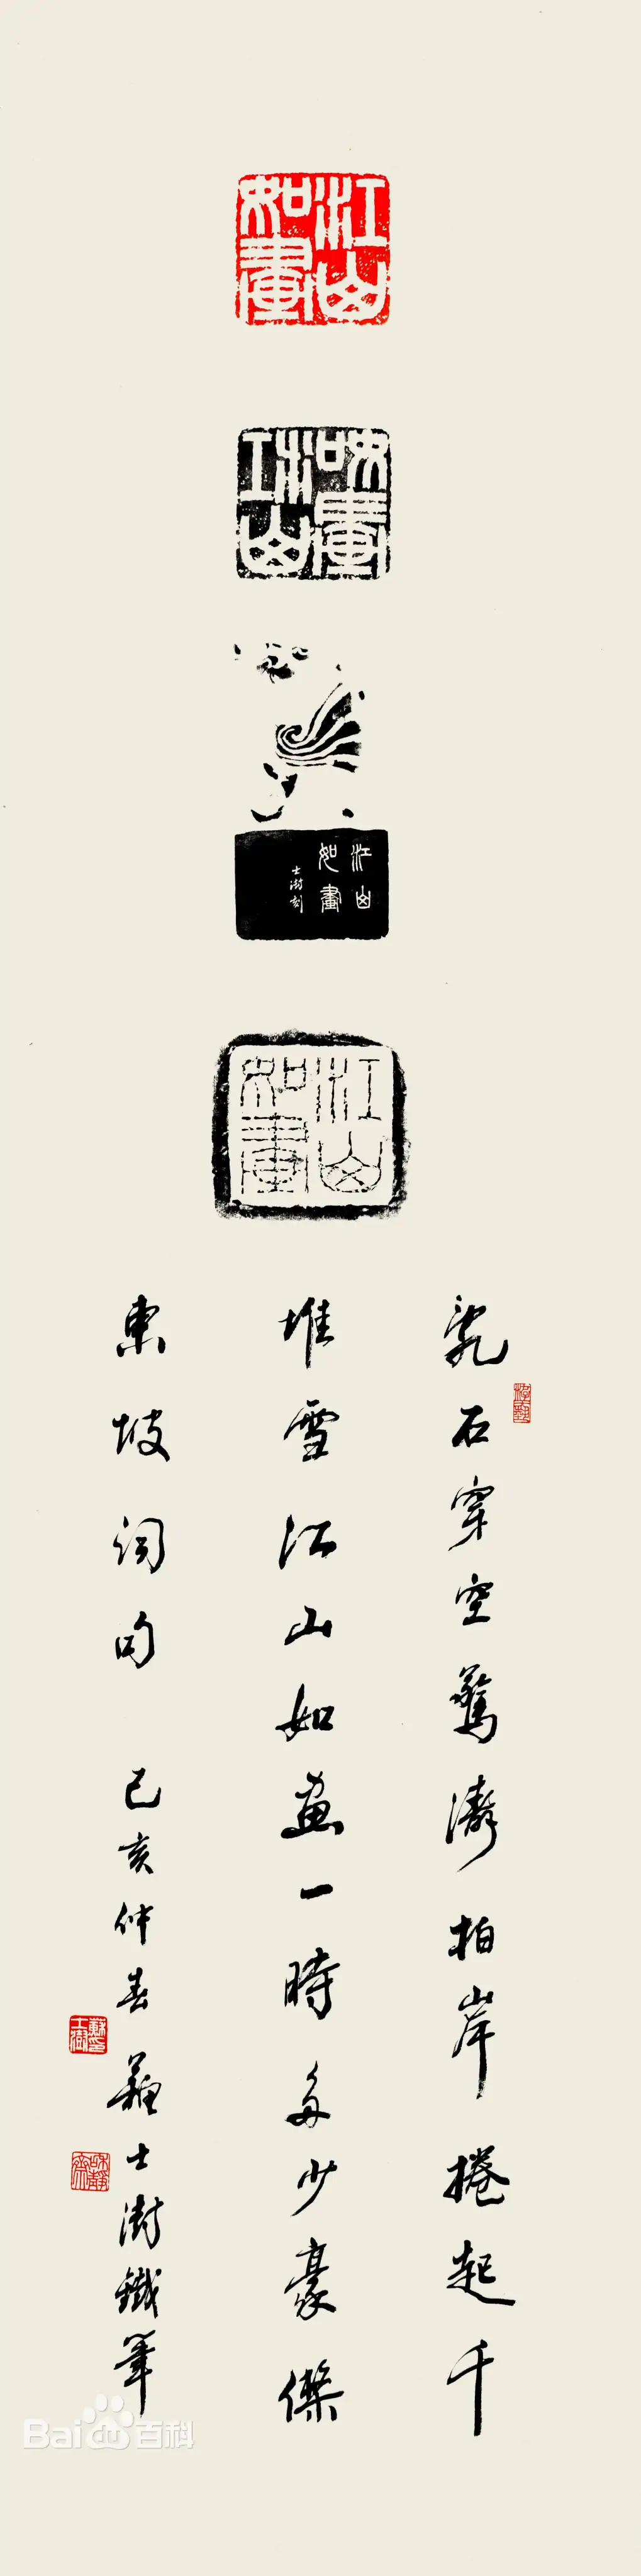 江山
如畫
江山
如畫
江山
如畫
士澍刻
江山
如畫
亂石穿空驚濤拍岸捲起千
堆雪江山如畫一時多少豪傑
東坡詞句 己亥仲春蘇士澍鐵筆
Bai百科